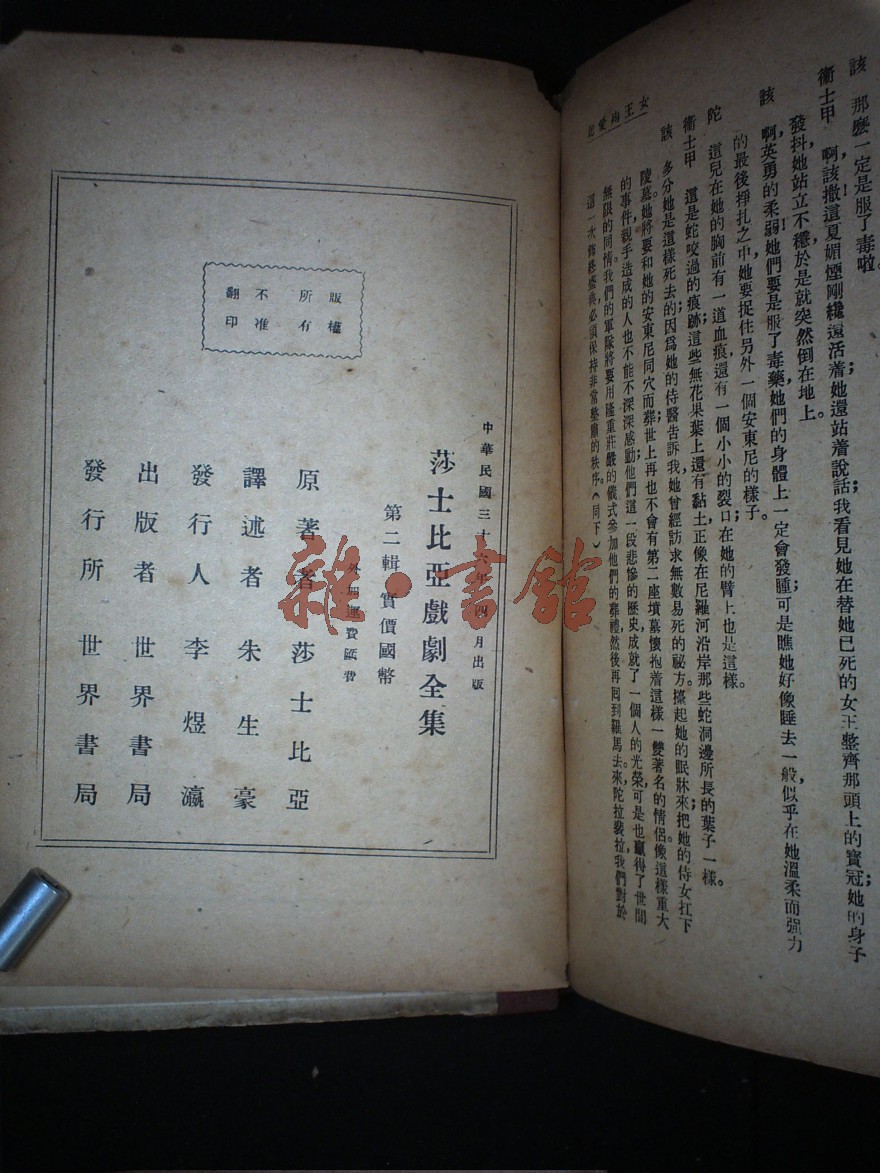 該 那麼一定是服了毒啦。
衞士甲 啊，該撒！這夏媚煙剛纔還活着；她還站着說話；我看見她在替她已死的女王整齊那頭上的寶冠；她的身子
發抖，她站立不穩，於是就突然倒在地上。
該 啊，英勇的柔弱！她們要是服了毒藥，她們的身體上一定會發腫；可是瞧她好像睡去一般，似乎在她溫柔而强力
的最後掙扎之中，她要捉住另外一個安東尼的樣子。
陀 這兒在她的胸前有一道血痕，還有一個小小的裂口；在她的臂上也是這樣。
衞士甲 這是蛇咬過的痕跡；這些無花果葉上還有黏土，正像在尼羅河沿岸那些蛇洞邊所長的葉子一樣。
該 多分她是這樣死去的；因爲她的侍醫告訴我，她曾經訪求無數易死的祕方。擡起她的眠牀來；把她的侍女扛下
陵墓。她將要和她的安東尼同穴而葬；世上再也不會有第二座墳墓懷抱着這樣一雙著名的情侶。像這樣重大
的事件，親手造成的人也不能不深深感動；他們這一段悲慘的歷史，成就了一個人的光榮，可是也贏得了世間
無限的同情。我們的軍隊將要用隆重莊嚴的儀式參加他們的葬禮，然後再回到羅馬去。來，陀拉裴拉，我們對於
這一次飾終盛典，必須保持非常整肅的秩序。（同下）
女王殉愛記
版權
所有
不准
翻印
中華民國三十六年四月出版
莎士比亞戲劇全集
第二輯 實價國幣
外加運費匯費
原著者 莎士比亞
譯述者 朱生豪
發行人 李煜瀛
出版者 世界書局
發行所 世界書局
雜·書館